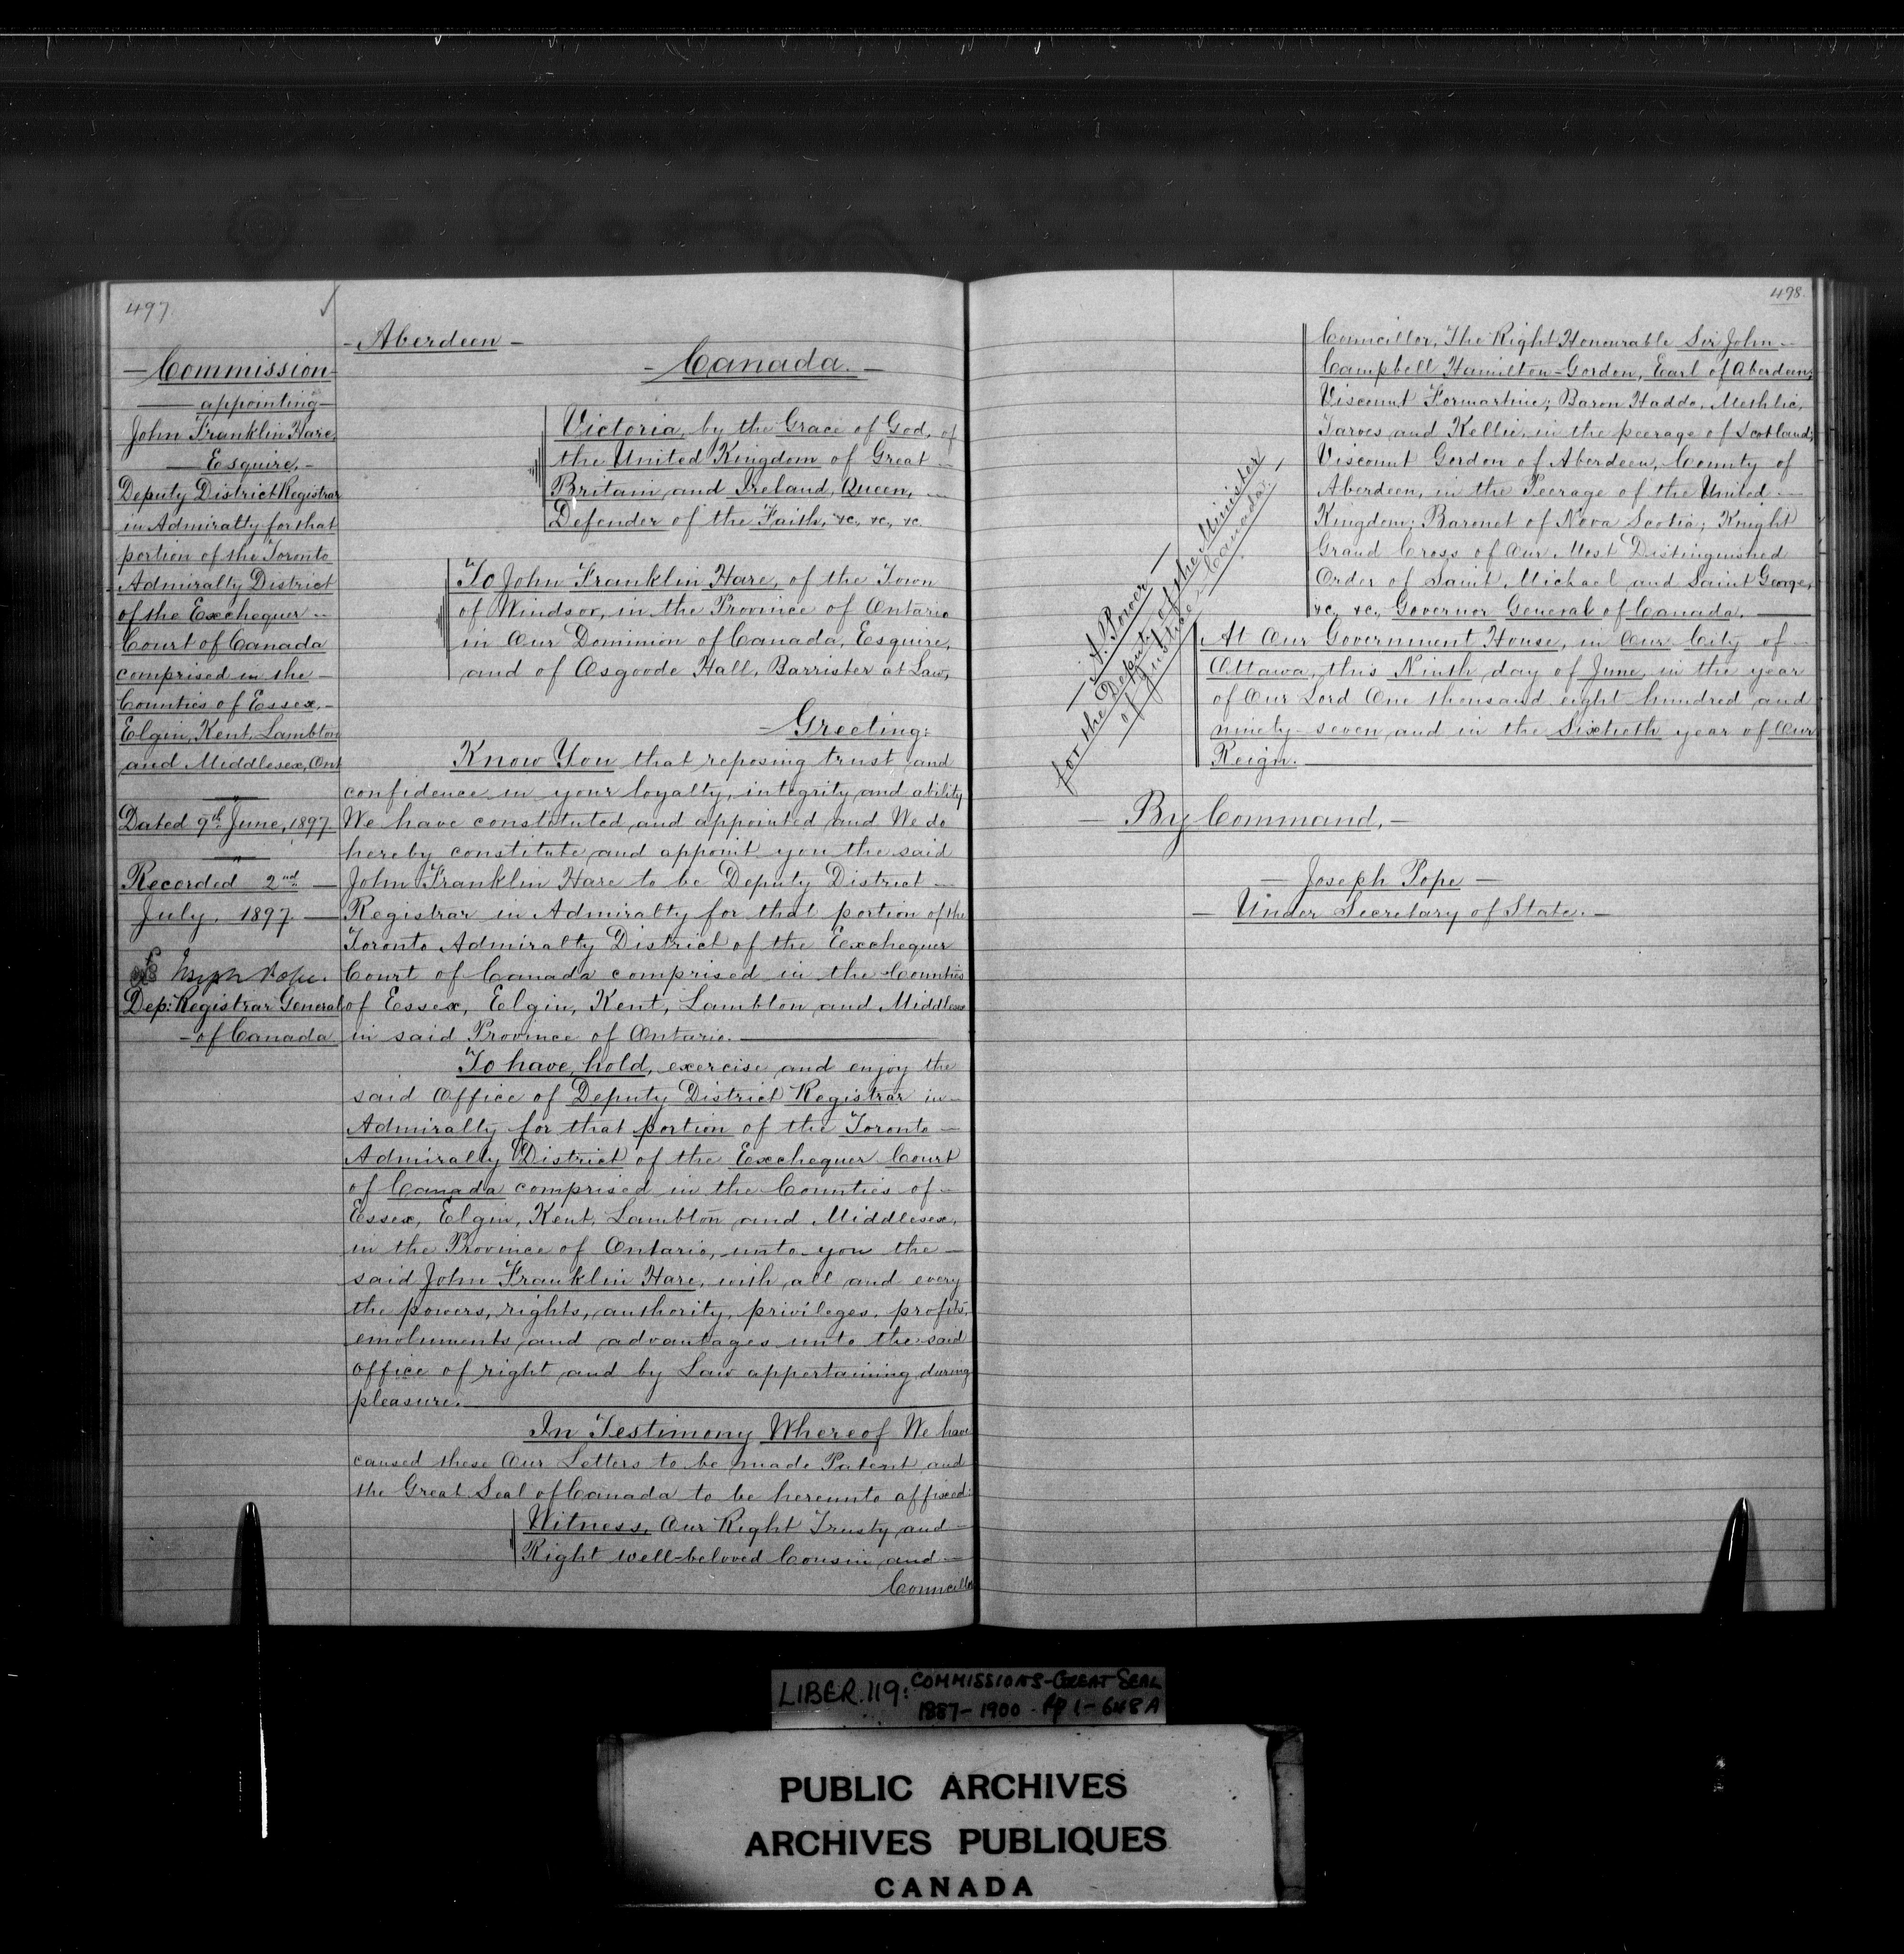 497
Commission
appointing
John Franklin Hare,
Esquire,
Deputy District Registrar
in Admiralty for that
portion of the Toronto
Admiralty District
of the Exchequer
Court of Canada
comprised in the
Counties of Essex,
Elgin, Kent, Lambton
and Middlesex, Ont
Dated 9th June, 1897.
Recorded 2nd
July, 1897.
Joseph Pope.
Dep: Registrar General
of Canada
- Aberdeen -
- Canada. -
Victoria, by the Grace of God, of
the United Kingdom of Great
Britain and Ireland, Queen,
Defender of the Faith, &c., &c., &c.
To John Franklin Hare, of the Town
of Windsor, in the Province of Ontario
in Our Dominion of Canada, Esquire,
and of Osgoode Hall, Barrister at Law,
Greeting:
Know You that reposing trust and
confidence in your loyalty, integrity and ability
We have constituted and appointed and We do
hereby constitute and appoint you the said
John Franklin Hare to be Deputy District
Registrar in Admiralty for that portion of the
Toronto Admiralty District of the Exchequer
Court of Canada comprised in the Counties
of Essex, Elgin, Kent, Lambton and Middlesex
in said Province of Ontario.
To have, hold, exercise and enjoy the
said Office of Deputy District Registrar in
Admiralty for that portion of the Toronto
Admiralty District of the Exchequer Court
of Canada comprised in the Counties of
Essex, Elgin, Kent, Lambton and Middlesex,
in the Province of Ontario, unto you the
said John Franklin Hare, with all and every
the powers, rights, authority, privileges, profits,
emoluments and advantages unto the said
office of right and by Law appertaining during
pleasure.
In Testimony Whereof We have
caused these Our Letters to be made Patent and
the Great Seal of Canada to be hereunto affixed:
Witness, Our Right Trusty and
Right well-beloved Cousin and
Councillor
498.
Councillor, The Right Honourable Sir John
Campbell Hamilton-Gordon, Earl of Aberdeen;
Viscount Formartine; Baron Haddo, Methlic,
Tarves and Kellie, in the peerage of Scotland;
Viscount Gordon of Aberdeen, County of
Aberdeen, in the Peerage of the United
Kingdom; Baronet of Nova Scotia; Knight
Grand Cross of Our Most Distinguished
Order of Saint Michael and Saint George,
&c., &c., Governor General of Canada.
At Our Government House, in Our City of
Ottawa, this Ninth day of June, in the year
of Our Lord One thousand eight hundred and
ninety-seven and in the Sixtieth year of Our
Reign.
- A. Power -
for the Deputy of the Minister
of Justice Canada.
- By Command, -
- Joseph Pope -
- Under Secretary of State. -
LIBER. 119: COMMISSIONS-GREAT SEAL
1887-1900 - Pp 1-648A
PUBLIC ARCHIVES
ARCHIVES PUBLIQUES
CANADA